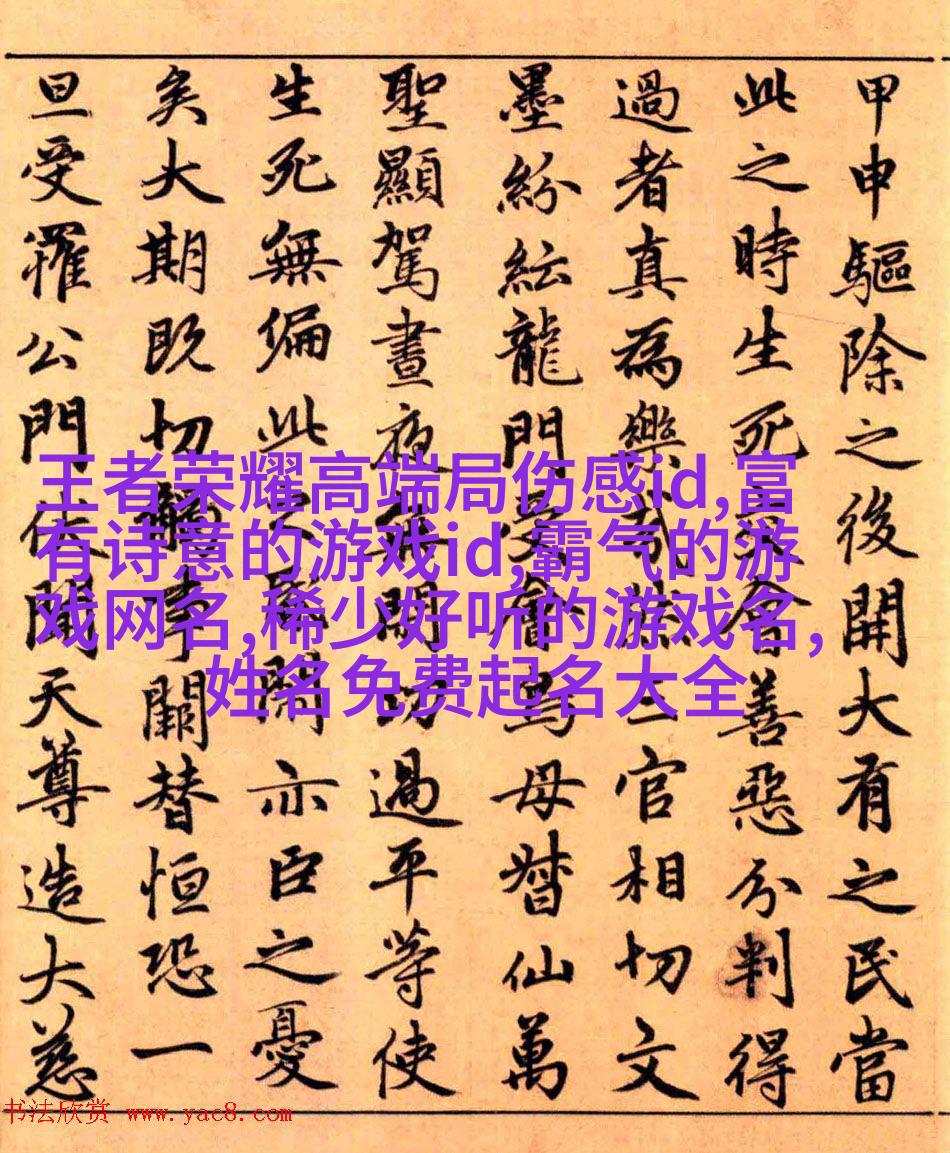 甲申驅除之後開大有之民當
此之時生死之會善惡分判得
過者真為樂三官相切文
墨紛紜龍門受會鳥母督仙萬
聖顯駕晝夜開功過平等使
生死無偏此亦臣之憂
矣大期既切觸事關替恒恐一
旦受罹公門伏聞天尊造大慈
王者荣耀高端局伤感id,富
有诗意的游戏id,霸气的游
戏网名,稀少好听的游戏名,
姓名免费起名大全
书法欣赏 www.yac8.com